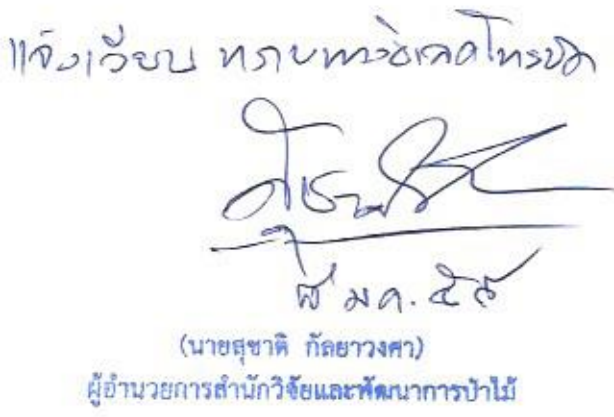 แจ้งเวียน ทราบทางอิเลคโทรนิค
ม.ค. ๕๙
(นายสุชาติ กัลยาวงศา)
ผู้อำนวยการสำนักวิจัยและพัฒนาการป่าไม้